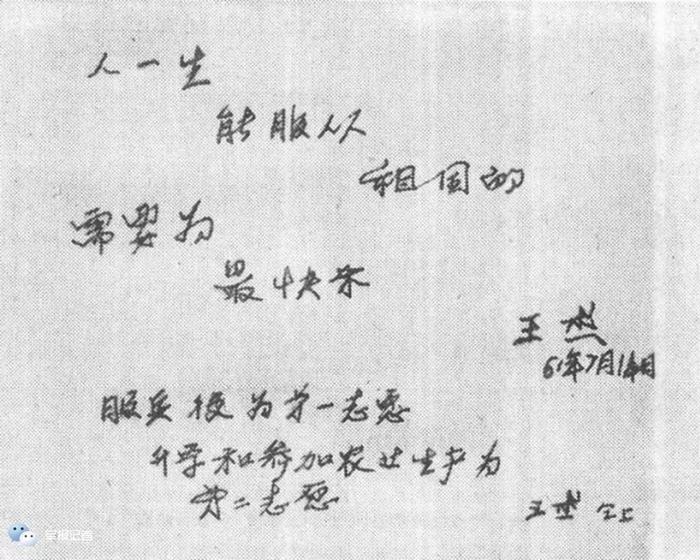 人一生
能服从
祖国的
需要为
最快乐
王杰
61年7月14日
服兵役为第一志愿
升学和参加农业生产为
第二志愿
王杰 仝上
军报记者